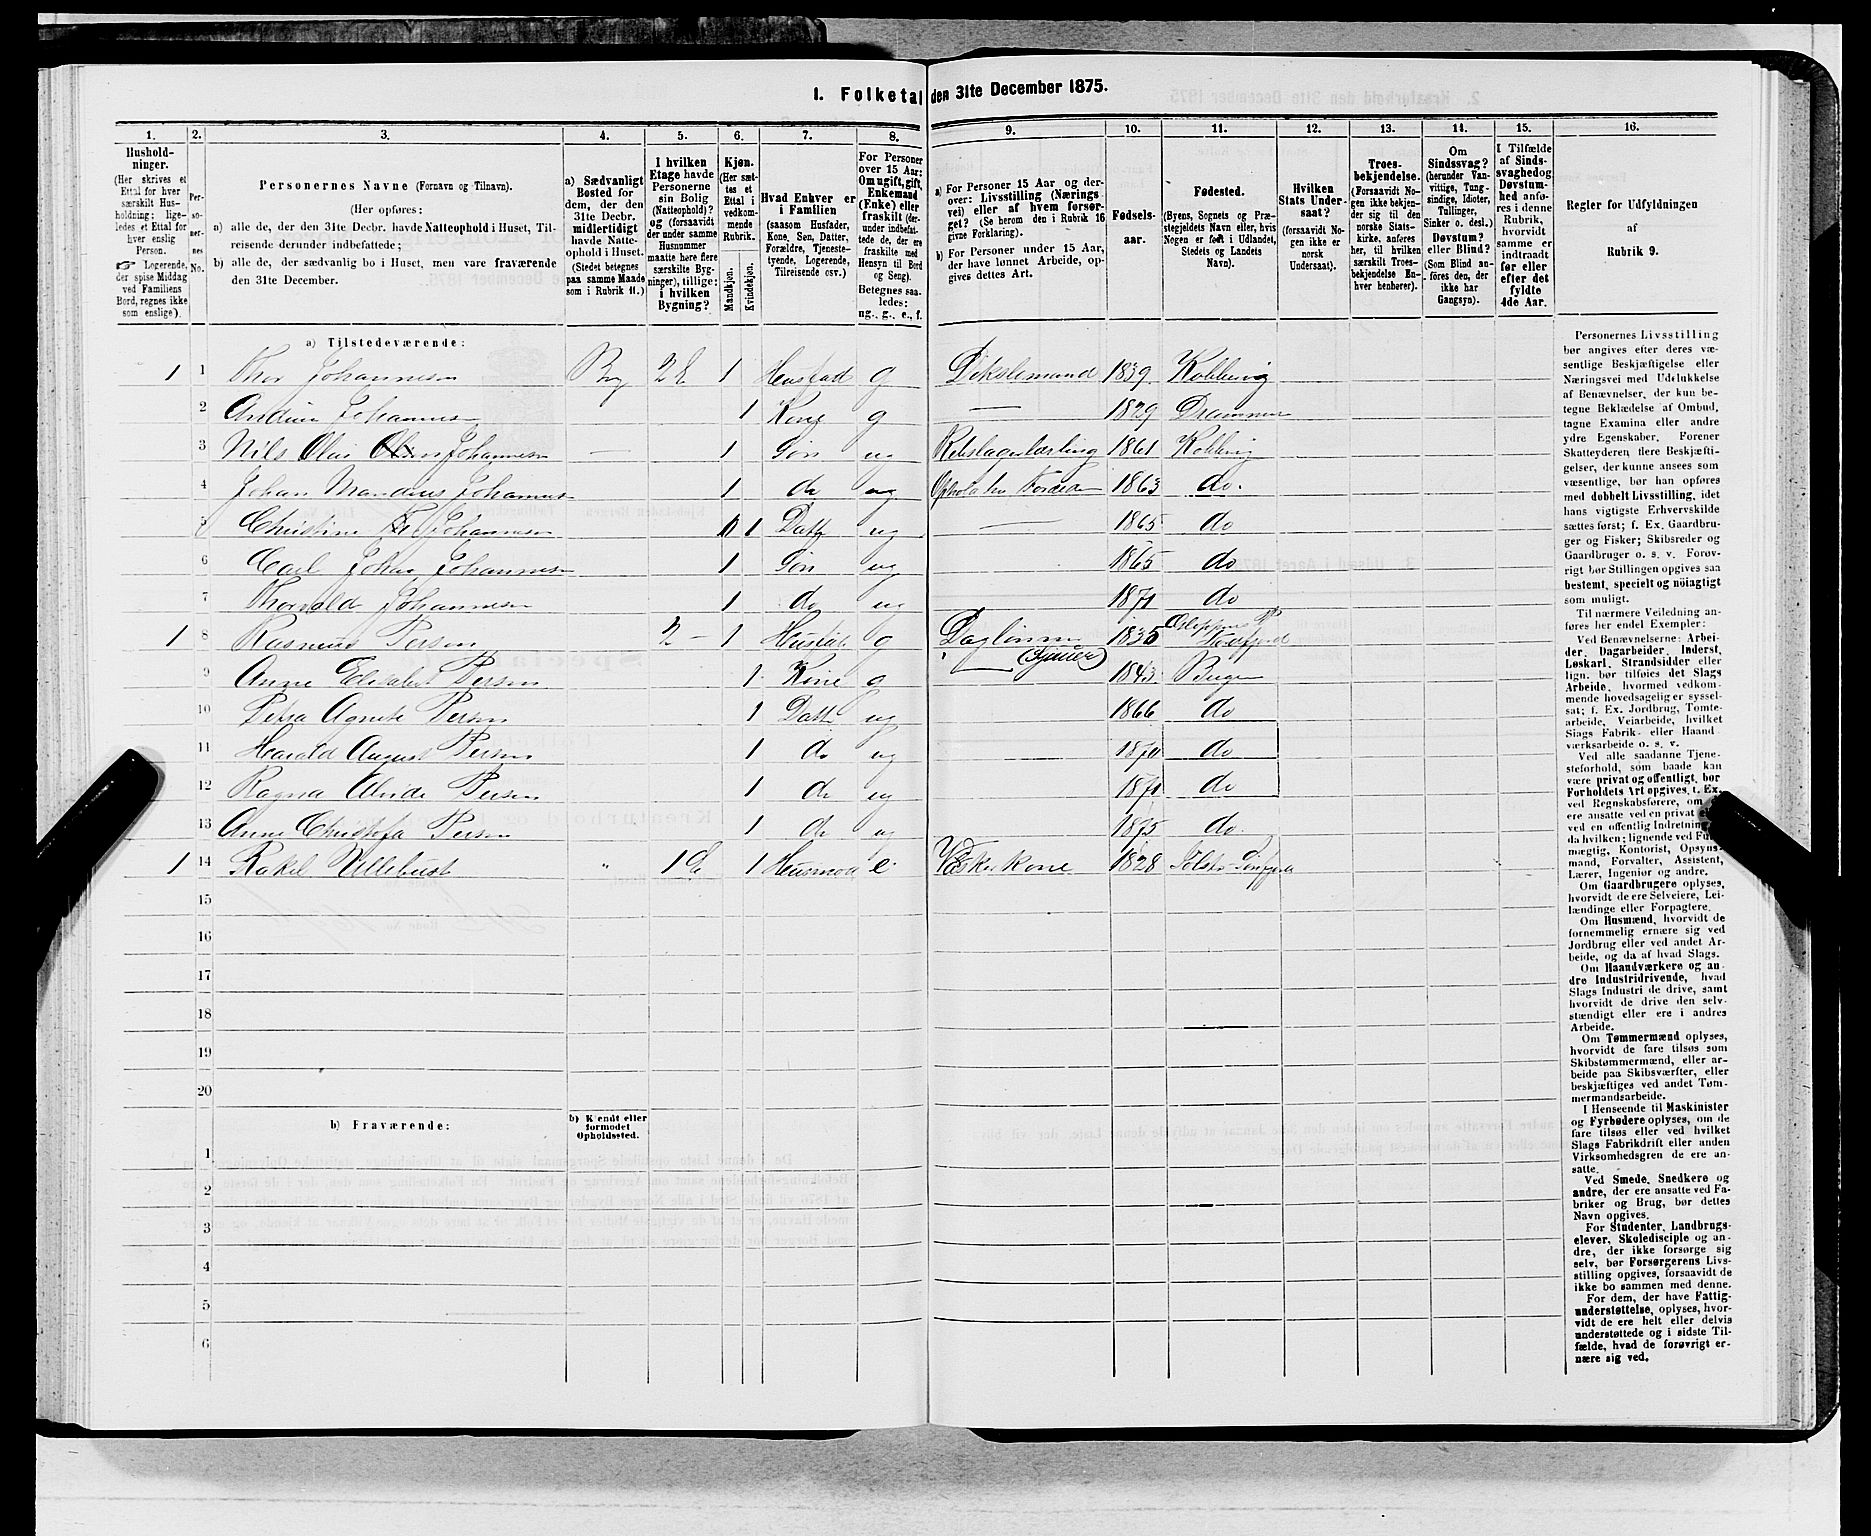 1. Folketal den 31te December 1875.
1. 2. 3. 4. 5. 6. 7. 8. 9. 10. 11. 12. 13. 14. 15. 16.
Hushold-
ninger.
(Her skrives et
Ettal for hver
særskilt Hus-
holdning; lige-
ledes et Ettal for
hver enslig
Person.
☞ Logerende,
der spise Middag
ved Familiens
Bord, regnes ikke
som enslige).
Per-
so-
ner-
nes
No.
Personernes Navne (Fornavn og Tilnavn).
(Her opføres:
a) alle de, der den 31te Decbr. havde Natteophold i Huset, Til-
reisende derunder indbefattede;
b) alle de, der sædvanlig bo i Huset, men vare fraværende
den 31te December.
a) Sædvanligt
Bosted for
dem, der den
31te Decbr.
midlertidigt
havde Natte-
ophold i Huset.
(Stedet betegnes
paa samme Maade
som i Rubrik 11.)
I hvilken
Etage havde
Personerne
sin Bolig
(Natteophold)?
og (forsaavidt
der under samme
Husnummer
maatte høre flere
særskilte Byg-
ninger), tillige:
i hvilken
Bygning?
Kjøn.
(Her sæt-
tes et
Ettal i
vedkom-
mende
Rubrik.
Mandkjøn.
Kvindekjøn.
Hvad Enhver er
i Familien
(saasom Husfader,
Kone, Søn, Datter,
Forældre, Tjeneste-
tyende, Logerende,
Tilreisende osv.)
For Personer
over 15 Aar:
Om ugift, gift,
Enkemand
(Enke) eller
fraskilt (der-
under indbefat-
tede de, der ere
fraskilte med
Hensyn til Bord
og Seng).
Betegnes saa-
ledes:
ug., g., e., f.
a) For Personer 15 Aar og der-
over: Livsstilling (Nærings-
vei) eller af hvem forsør-
get? (Se herom den i Rubrik 16
givne Forklaring).
b) For Personer under 15 Aar,
der have lønnet Arbeide, op-
gives dettes Art.
Fødsels-
aar.
Fødested.
(Byens, Sognets og Præ-
stegjeldets Navn eller, hvis
Nogen er født i Udlandet,
Stedets og Landets
Navn).
Hvilken
Stats Under-
saat?
(forsaavidt No-
gen ikke er
norsk
Undersaat).
Troes-
bekjendelse.
(Forsaavidt No-
gen ikke bekjen-
der sig til den
norske Stats-
kirke, anføres
her, til hvilken
særskilt Troes-
bekjendelse En-
hver henhører).
Om
Sindssvag?
(herunder Van-
vittige, Tung-
sindige, Idioter,
Tullinger,
Sinker o. desl.)
Døvstum?
eller Blind?
(Som Blind an-
føres den, der
ikke har
Gangsyn).
I Tilfælde
af Sinds-
svaghed og
Døvstum-
hed anfø-
res i denne
Rubrik,
hvorvidt
samme er
indtraadt
før eller
efter det
fyldte
4de Aar.
Regler for Udfyldningen
af
Rubrik 9.
a) Tilstedeværende:
1 1 Thor Johannesen By 2 E 1 Husfad g 1839 Kobbervig
2 Andrine Johannesen 1 Kone g — 1829 Drammen
3 Nils Olai Johannesen — 1 Søn ug Rebslagerlærling 1861 Kobbervig
4 Johan Mandius Johannesen 1 do ug 1863 do.
5 Christine Johannesen 1 Datt ug — 1865 do
6 Carl Johan Johannesen 1 Søn ug 1865 do
7 Thorvald Johannesen 1 do ug 1871 do
1 8 Rasmus Person 2 — 1 Husfad. g Daglønner 1835 Nordfjord
9 Anne Elisabet Person 1 Kone g — 1843 Bergen
10 Petra Agnete Person 1 Datt ug 1866 do
11 Harald August Person 1 do ug 1870 do
12 Ragna Person 1 do ug 1871 do
13 Anne Christofa Person 1 do ug 1875 do.
1 14 Rakel " 1 E 1 Husmod e. Vaskerkone 1828 Jølster Søndfjord
15
16
17
18
19
20
b) Fraværende:
b) Kjendt eller
formodet
Opholdssted.
1
2
3
4
5
6
Personernes Livsstilling
bør angives efter deres væ-
sentlige Beskjæftigelse eller
Næringsvei med Udelukkelse
af Benævnelser, der kun be-
tegne Beklædelse af Ombud,
tagne Examina eller andre
ydre Egenskaber. Forener
Skatteyderen flere Beskjæfti-
gelser, der kunne ansees som
væsentlige, bør han opføres
med dobbelt Livsstilling, idet
hans vigtigste Erhvervskilde
sættes først; f. Ex. Gaardbru-
ger og Fisker; Skibsreder og
Gaardbruger o. s. v. Forøv-
rigt bør Stillingen opgives saa
bestemt, specielt og nöiagtigt
som muligt.
Til nærmere Veiledning an-
føres her endel Exempler:
Ved Benævnelserne: Arbei-
der, Dagarbeider, Inderst,
Løskarl, Strandsidder eller
lign. bør tilføies det Slags
Arbeide, hvormed vedkom-
mende hovedsagelig er syssel-
sat; f. Ex. Jordbrug, Tomte-
arbeide, Veiarbeide, hvilket
Slags Fabrik- eller Haand
værksarbeide o. s. v.
Ved alle saadanne Tjene-
steforhold, som baade kan
være privat og offentligt, bør
Forholdets Art opgives, t. Ex.
ved Regnskabsførere, om
ere ansatte ved en privat
ved en offentlig Indretning
da hvilken; lignende ved Fuld-
mægtig, Kontorist, Opsyns-
mand, Forvalter, Assistent,
Lærer, Ingeniør og andre.
Om Gaardbrugere oplyses,
hvorvidt de ere Selveiere, Lei-
lændinge eller Forpagtere.
Om Husmænd, hvorvidt de
fornemmelig ernære sig ved
Jordbrug eller ved andet Ar-
beide, og da af hvad Slags.
Om Haandværkere og an-
dre Industridrivende, hvad
Slags Industri de drive, samt
hvorvidt de drive den selv-
stændigt eller ere i andres
Arbeide.
Om Tømmermænd oplyses,
hvorvidt de fare tilsøs som
Skibstømmermænd, eller ar-
beide paa Skibsværfter, eller
beskjæftiges ved andet Tøm-
mermandsarbeide.
I Henseende til Maskinister
og Fyrbødere oplyses, om de
fare tilsøs eller ved hvilket
Slags Fabrikdrift eller anden
Virksomhedsgren de ere an-
satte.
Ved Smede, Snedkere og
andre, der ere ansatte ved Fa-
briker og Brug, bør dettes
Navn opgives.
For Studenter, Landbrugs-
elever, Skoledisciple og an-
dre, der ikke forsørge sig
selv, bør Forsørgerens Livs-
stilling opgives, forsaavidt de
ikke bo sammen med denne.
For dem, der have Fattig-
understøttelse, oplyses, hvor-
vidt de ere helt eller delvis
understøttede og i sidste Til-
fælde, hvad de forøvrigt er-
nære sig ved.